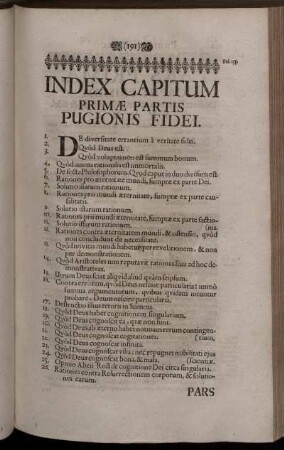 (191)
INDEX CAPITUM
PRIMÆ PARTIS
PUGIONIS FIDEI.
1. DE diversitate errantium à veritate fidei.
2. Quòd Deus est.
3. Quòd voluptas non est summum bonum.
4. Quòd anima rationalis est immortalis.
5. De secta Philosophorum. Quòd caput in duo divisum est.
6. Rationes pro æternitate mundi, sumptæ ex parte Dei.
7. Solutio istarum rationum.
8. Rationes pro mundi æternitate, sumptæ ex parte causalitatis.
9. Solutio istarum rationum.
10. Rationes pro mundi æternitate, sumptæ ex parte factio-
11. Solutio istarum rationum. (nis.
12. Rationes contra æternitatem mundi, & ostensio, quòd
non concludunt de necessitate.
13. Quòd novitas mundi habetur per revelationem, & non
per demonstrationem.
14. Quòd Aristoteles non reputavit rationes suas ad hoc de-
monstrativas.
15. Utrum Deus sciat aliquid aliud quàm seipsum.
16. Contra errorem, quòd Deus
17. Destructio
18. Quòd Deus habet cognitionem singularium.
19. Quòd Deus cognoscit ea, quæ non sunt.
20. Quòd Deus ab æterno habet notitiam rerum contingen-
21. Quòd Deus cognoscat cogitationes. (tium.
22. Quòd Deus cognoscat infinita.
23. Quòd Deus cognoscat vilia: nec repugnet nobilitati ejus
24. Quòd Deus cognoscat bona & mala. (scientiæ.
25. Opinio Aben Rost de cognitione Dei circa singularia.
26. Rationes contra Resurrectionem corporum, & solutio-
nes earum.
PARS